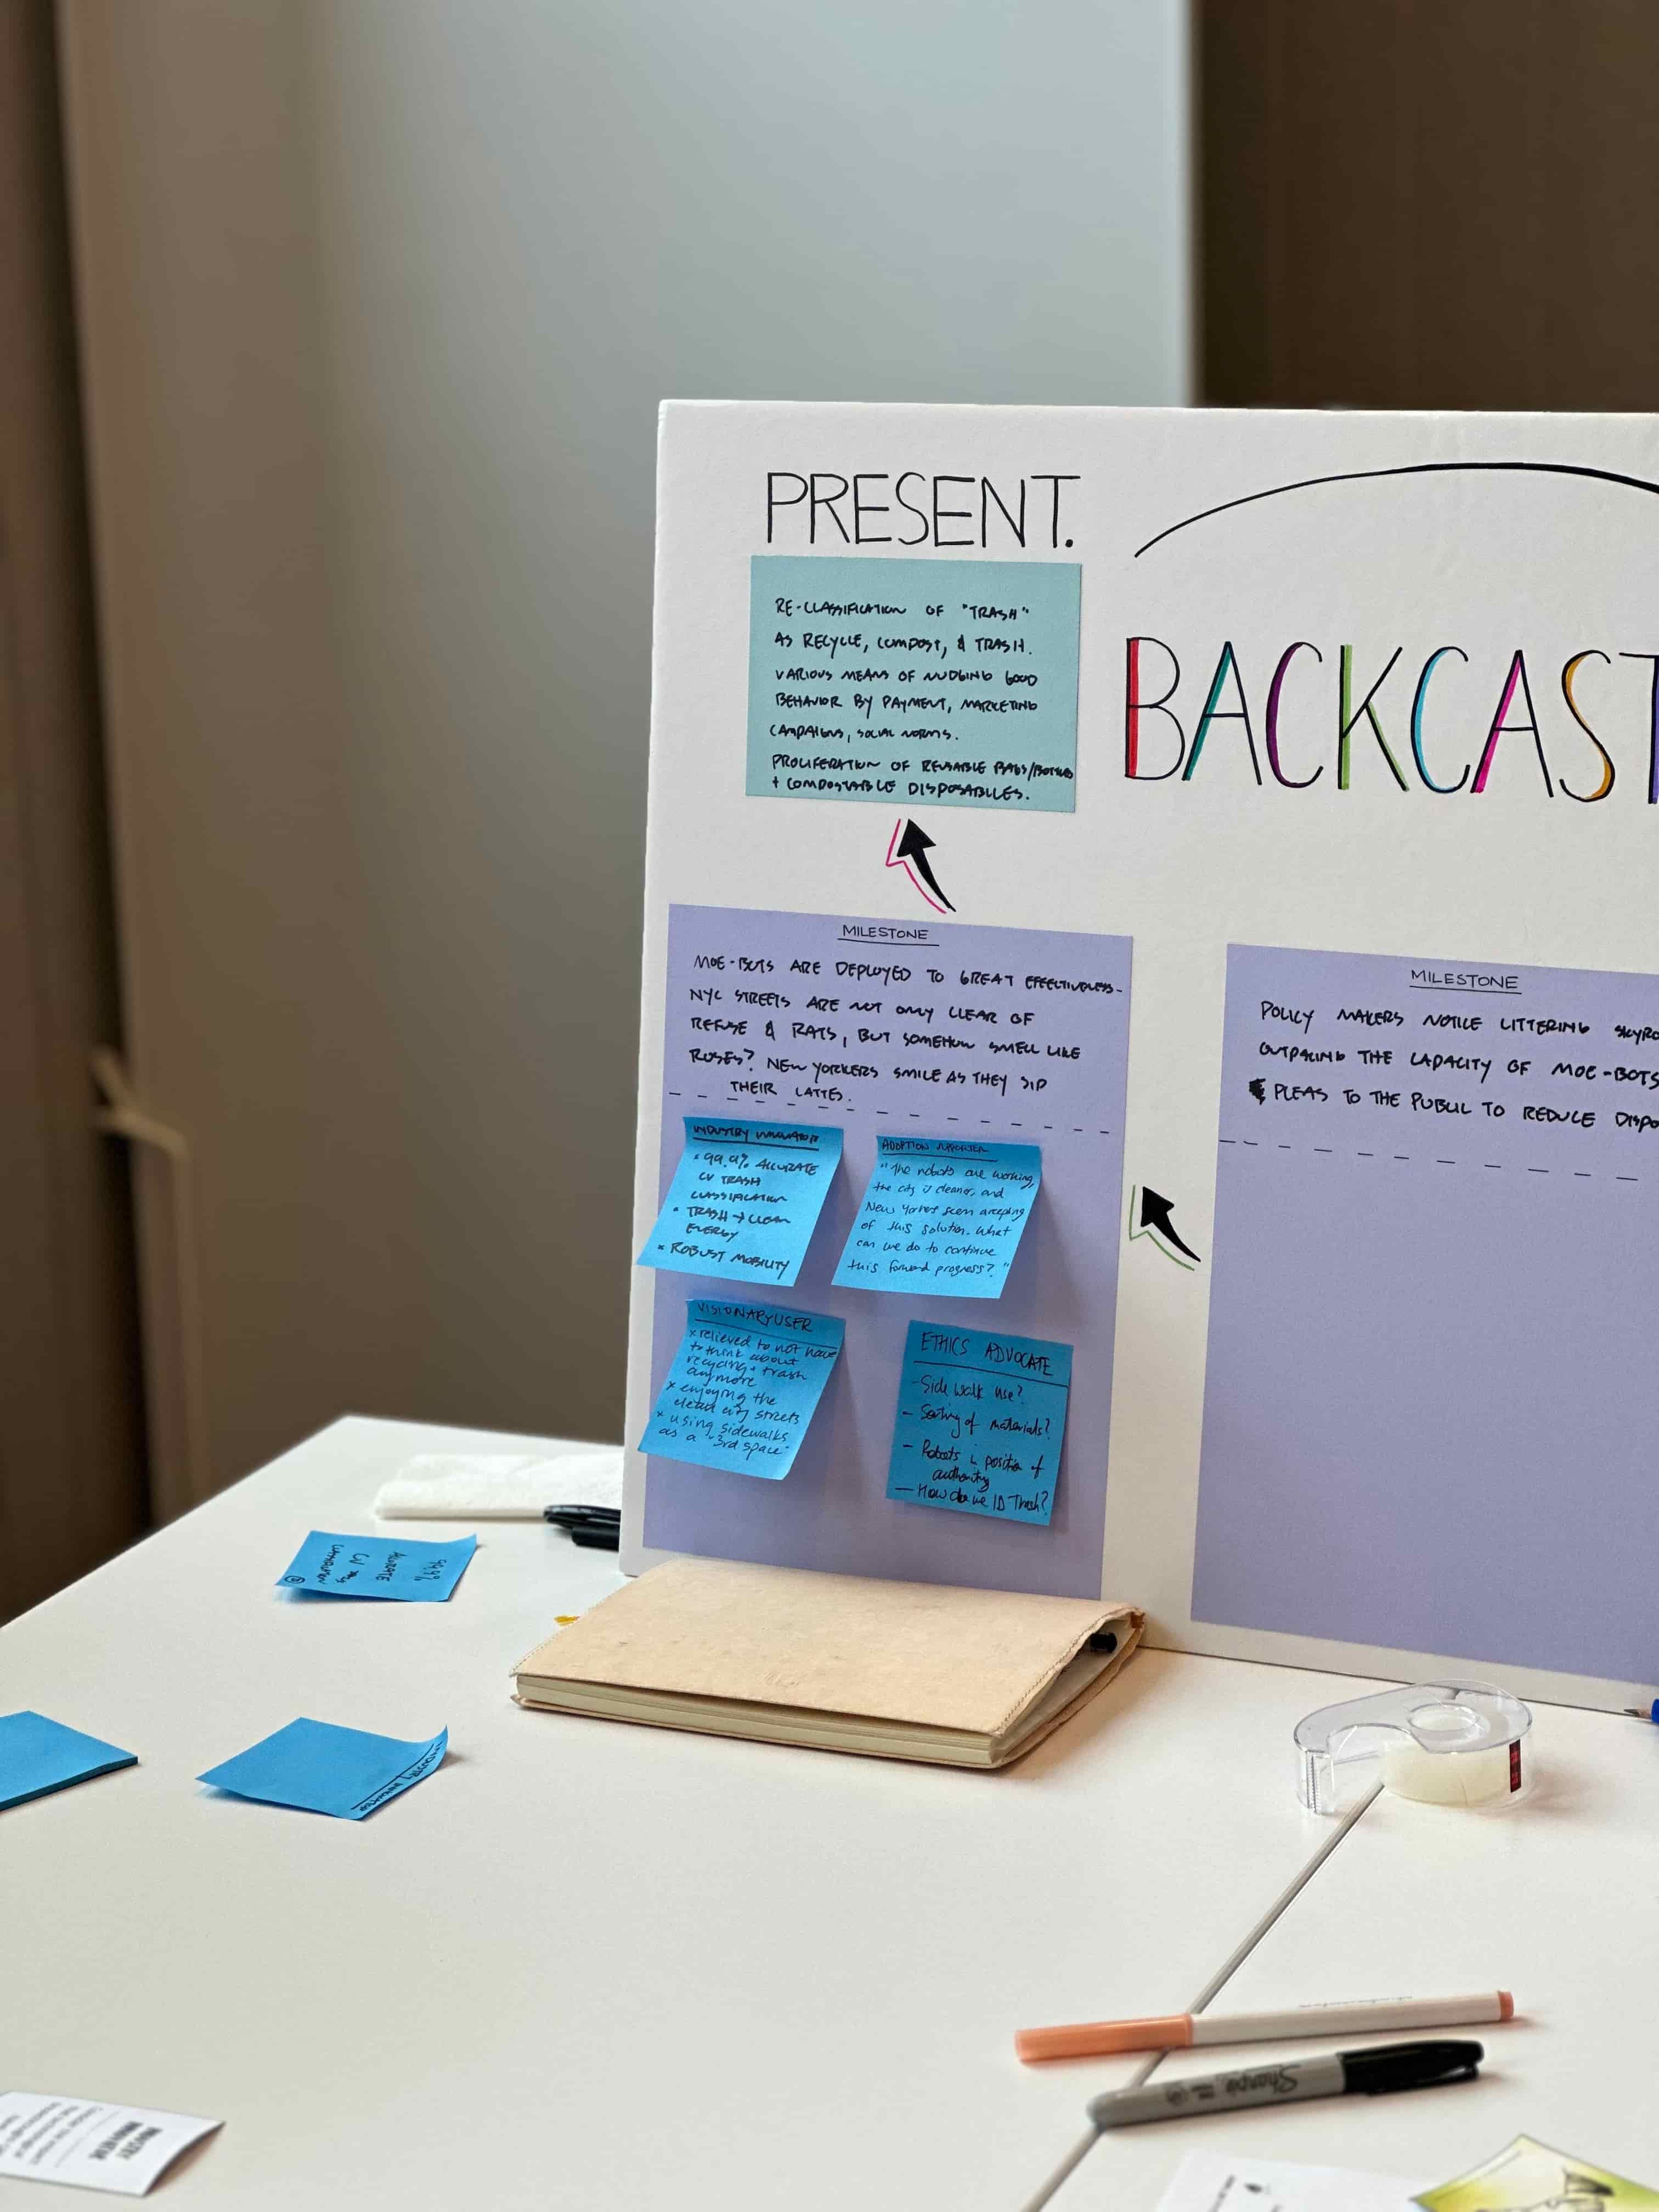 PRESENT.
RE-CLASSIFICATION OF "TRASH"
AS RECYCLE, COMPOST, & TRASH.
VARIOUS MEANS OF NUDGING GOOD
BEHAVIOR BY PAYMENT, MARKETING
CAMPAIGNS, SOCIAL NORMS.
PROLIFERATION OF REUSABLE BAGS/BOTTLES
+ COMPOSTABLE DISPOSABLES.
BACKCAST
MILESTONE
MOE-BOTS ARE DEPLOYED TO GREAT EFFECTIVENESS-
NYC STREETS ARE NOT ONLY CLEAR OF
REFUSE & RATS, BUT SOMEHOW SMELL LIKE
ROSES? NEW YORKERS SMILE AS THEY SIP
THEIR LATTES.
INDUSTRY INNOVATOR
• 99.9% ACCURATE
CV TRASH
CLASSIFICATION
• TRASH → CLEAN
ENERGY
• ROBUST MOBILITY
ADOPTION SUPPORTER
"The robots are working,
the city is cleaner, and
New Yorkers seem accepting
of this solution. What
can we do to continue
this forward progress?"
VISIONARY USER
x relieved to not have
to think about
recycling + trash
anymore
x enjoying the
clean city streets
x using sidewalks
as a "3rd space"
ETHICS ADVOCATE
- Side walk use?
- Sorting of materials?
- Robots in position of
authority
- How do we ID Trash?
MILESTONE
POLICY MAKERS NOTICE LITTERING SKYRO
OUTPACING THE CAPACITY OF MOE-BOTS
PLEAS TO THE PUBLIC TO REDUCE DISPO
99.9%
ACCURATE
CV
INDUSTRY INNOVATOR
INDUSTRY
INNOVATOR
Sharpie